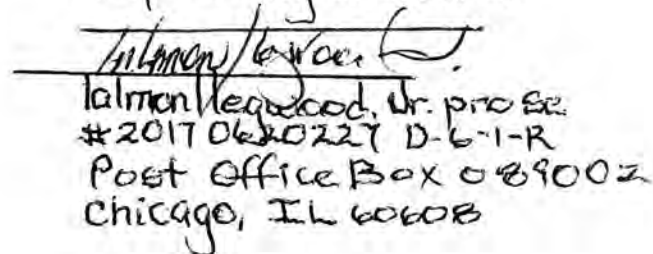 Talmon Hegwood, Jr. pro se
#20170620227 D-6-1-R
Post Office Box 089002
Chicago, IL 60608